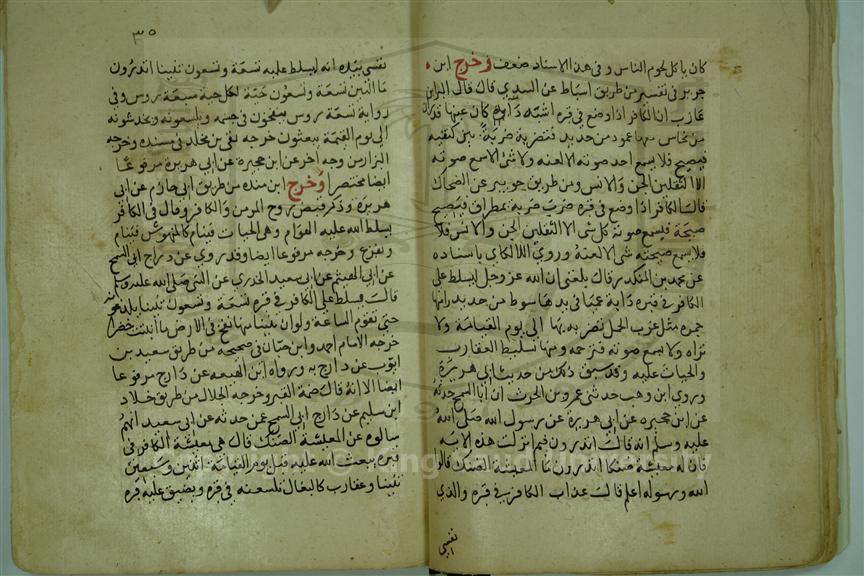 كان يأكل لحوم الناس وفي هذا الاسناد ضعف وخرج ابن
جرير في تفسيره من طريق اسباط عن السدي قال قال البراء بن
عازب ان الكافر اذا وضع في قبره اتته دابة كان عينيها قدران
من نحاس معها عمود من حديد فتضربه ضربة بين كتفيه
فيصيح فلا يسمع احد صوته الا لعنه ولا شئ الا سمع صوته
الا الثقلين الجن والانس ومن طريق جويبر عن الضحاك
قال الكافر اذا وضع في قبره ضرب ضربة بمطراق فيصيح
صيحة فيسمع صوته كل شي الا الثقلين الجن والانس فلا
فلا يسمع صيحته شي الا لعنه وروي اللالكاي باسناده
عن محمد بن المنكدر قال بلغني ان الله عز وجل يسلط على
الكافر في قبره دابة عميا في يدها سوط من حديد راسها
جمره مثل غرب الجمل تضربه بها الى يوم القيامة ولا
تراه ولا يسمع صوته فترحمه ومنها تسليط العقارب
والحيات عليه وقد سبق ذلك من حديث ابي هريرة
وروي ابن وهب حدثني عمرو بن الحرث ان ابا السمح حدثه
عن ابن حجيره عن ابي هريرة عن رسول الله صلى الله
عليه وسلم انه قال اتدرون فيم انزلت هذه الايه
فان له معيشة ضنكا اتدرون ما المعيشة الضنك قالوا
الله ورسوله اعلم قال عذاب الكافر في قبره والذي
نفسي
٣٥
نفسي بيده انه ليسلط عليه تسعة وتسعون تنينا اتدرون
ما التنين تسعة وتسعون حية لكل حية سبعة روس وفي
رواية تسعة روس ينفخون في جسمه ويلسعونه ويخدشونه
الى يوم القيمة يبعثون خرجه بقي بن مخلد في مسنده وخرجه
البزار من وجه اخر عن ابن حجيرة عن ابي هريرة مرفوعا
ايضا مختصرا وخرج ابن منده من طريق ابي حازم عن ابي
هريرة وذكر قبض روح المومن والكافر وقال في الكافر
يسلط الله عليه الهوام وهي الحيات فينام كالمنهوش فينام
ويفزع وخرجه مرفوعا ايضا وقد روي عن دراج ابي السمح
عن ابي الهيثم عن ابي سعيد الخدري عن النبي صلى الله عليه وسلم
قال يسلط على الكافر في قبره تسعة وتسعون تنينا تلدغه
حتى تقوم الساعة ولو ان تنينا منها نفخ في الارض ما انبتت خضرا
خرجه الامام احمد وابن حبان في صحيحه من طريق سعيد بن
ايوب عن دراج به ورواه ابن لهيعه عن دراج مرفوعا
ايضا الا انه قال ضمة القبر وخرجه الخلال من طريق خلاد
ابن سليم عن دراج ابي السمح عمن حدثه عن ابي سعيد انهم
سالوه عن المعيشة الضنك قال هي معيشة الكافر في
قبره يبعث الله عليه قبل يوم القيامة اثنين وسبعين
تنينا وعقارب كالبغال تلسعنه في قبره ويضيق عليه قبره